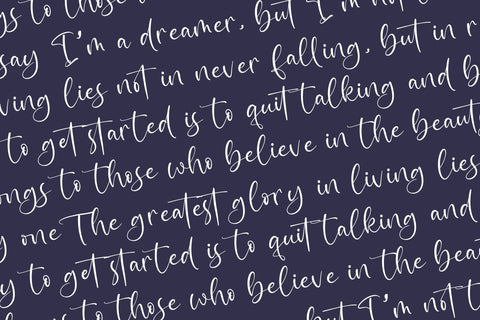 to those
say I'm a dreamer, but I'm not
lies not in never falling, but in
to get started is to quit talking and
to those who believe in the
one The greatest glory in living lies
to get started is to quit talking and
to those who believe in the
but I'm not